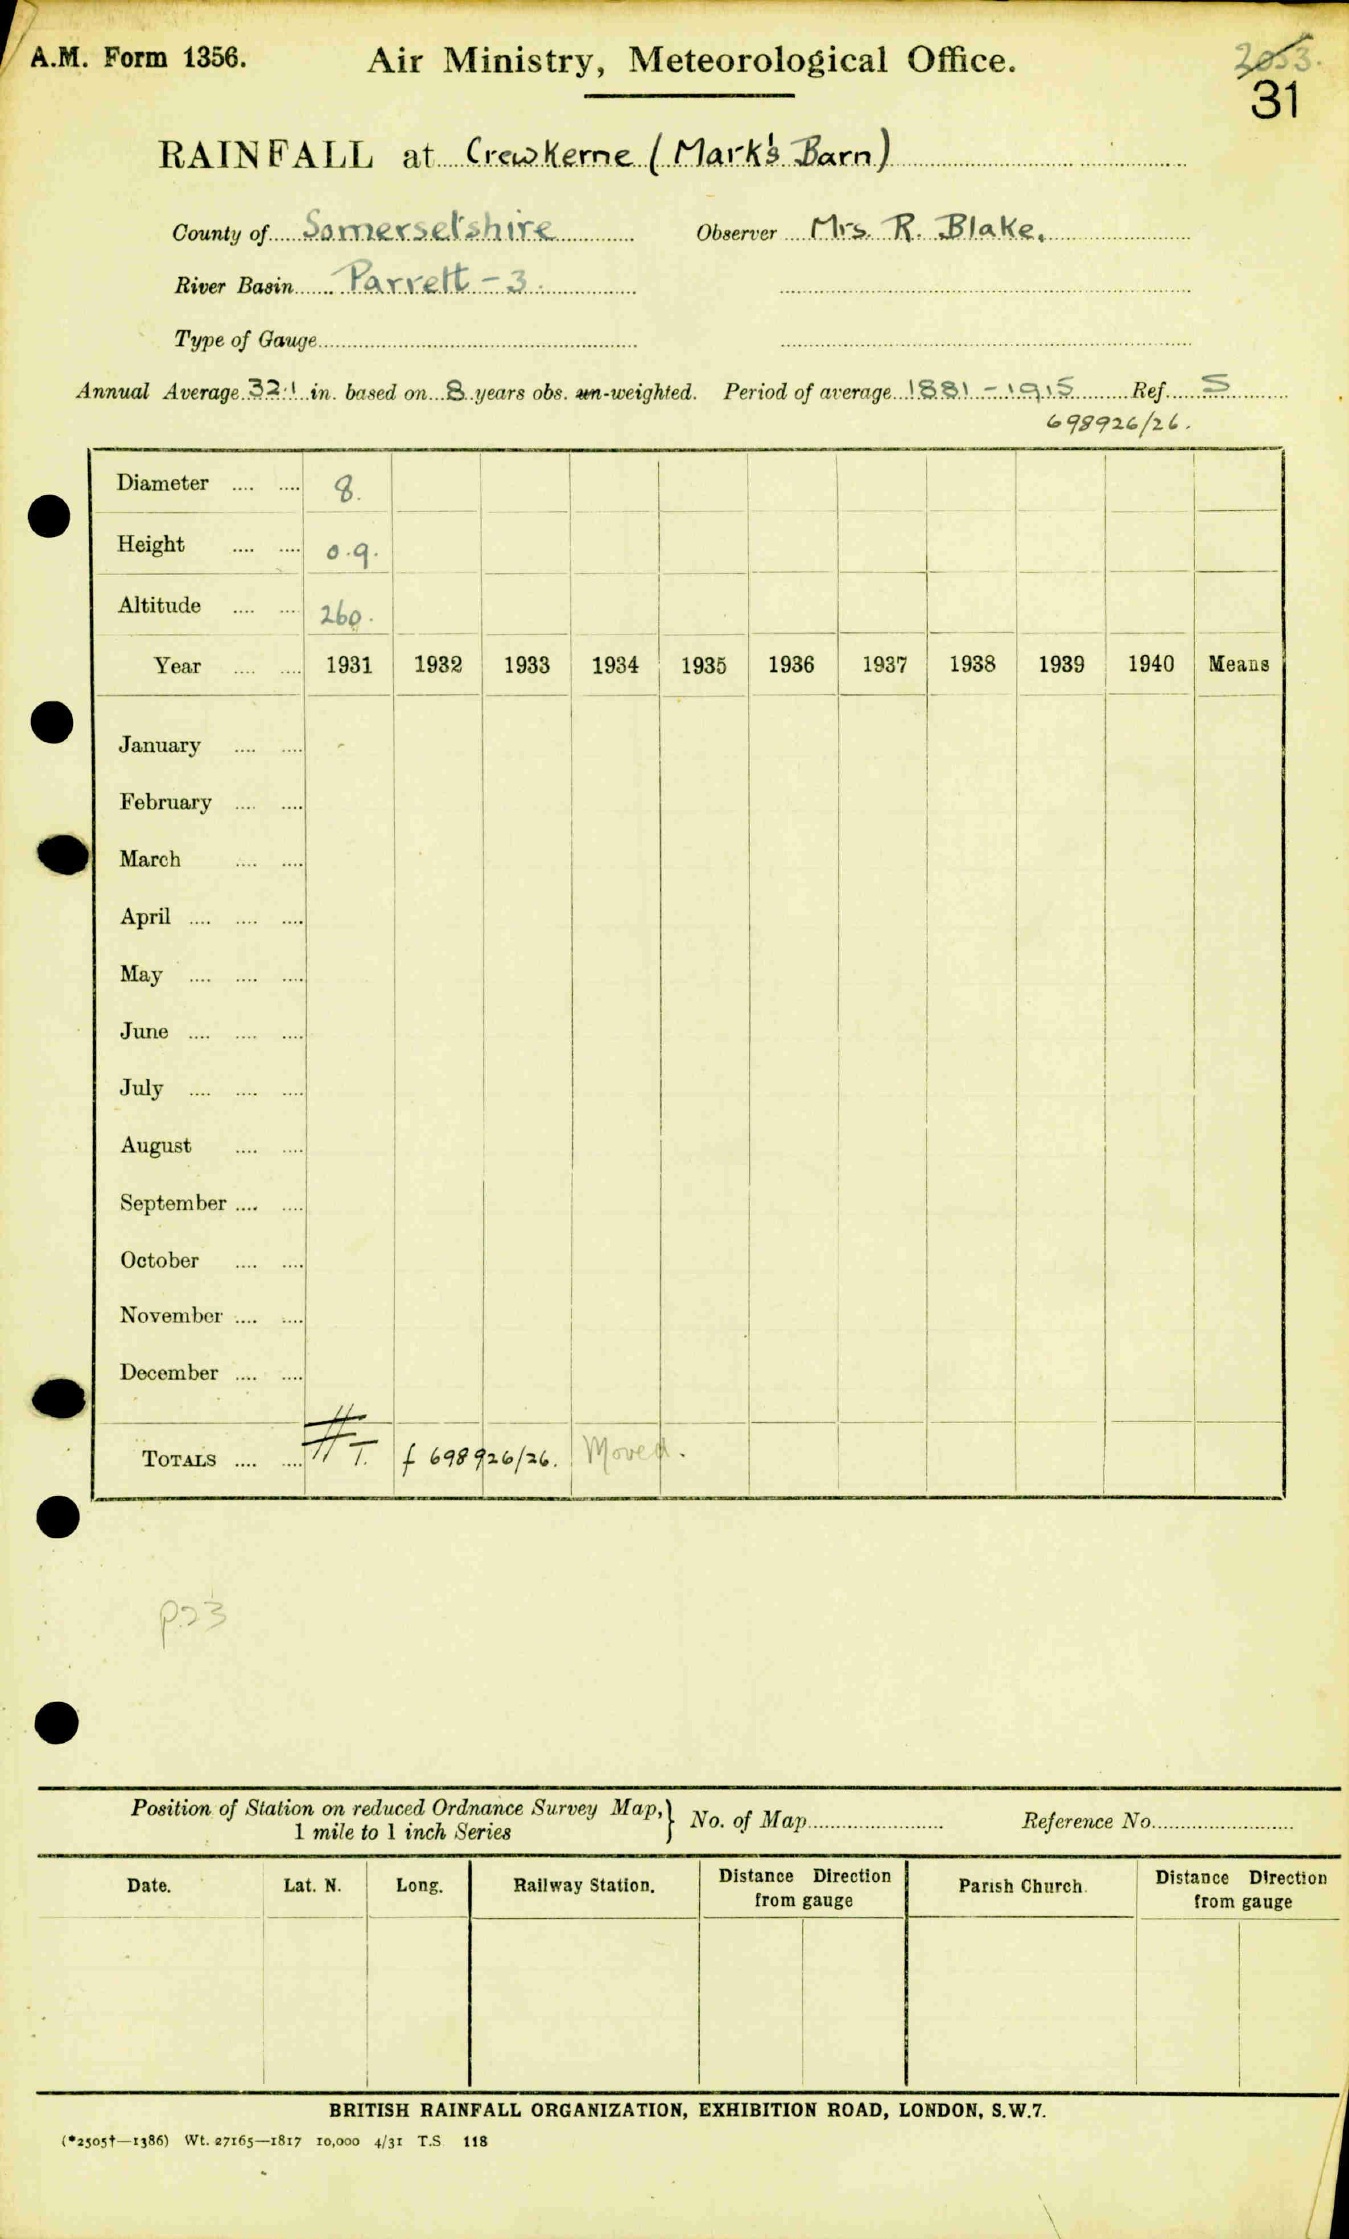 A.M. Form 1356. Air Ministry, Meteorological Office. 2053.
31
RAINFALL at Crewkerne (Mark's Barn)
County of Somersetshire Observer Mrs. R. Blake.
River Basin Parrett - 3.
Type of Gauge
Annual Average 32.1 in. based on 8 years obs. un-weighted. Period of average 1881 - 1915 Ref. S
698926/26.
Diameter .... .... 8.
Height .... .... 0.9.
Altitude .... .... 260.
Year .... .... 1931 1932 1933 1934 1935 1936 1937 1938 1939 1940 Means
January .... .... -
February .... ....
March .... ....
April .... .... ....
May .... .... ....
June .... .... ....
July .... .... ....
August .... ....
September .... ....
October .... ....
November .... ....
December .... ....
TOTALS .... .... T. f 698926/26. Moved.
p.23
Position of Station on reduced Ordnance Survey Map, } No. of Map Reference No.
1 mile to 1 inch Series
Date. Lat. N. Long. Railway Station. Distance Direction from gauge Parish Church. Distance Direction from gauge
BRITISH RAINFALL ORGANIZATION, EXHIBITION ROAD, LONDON, S.W.7.
(*2505†—1386) Wt. 27165—1817 10,000 4/31 T.S 118